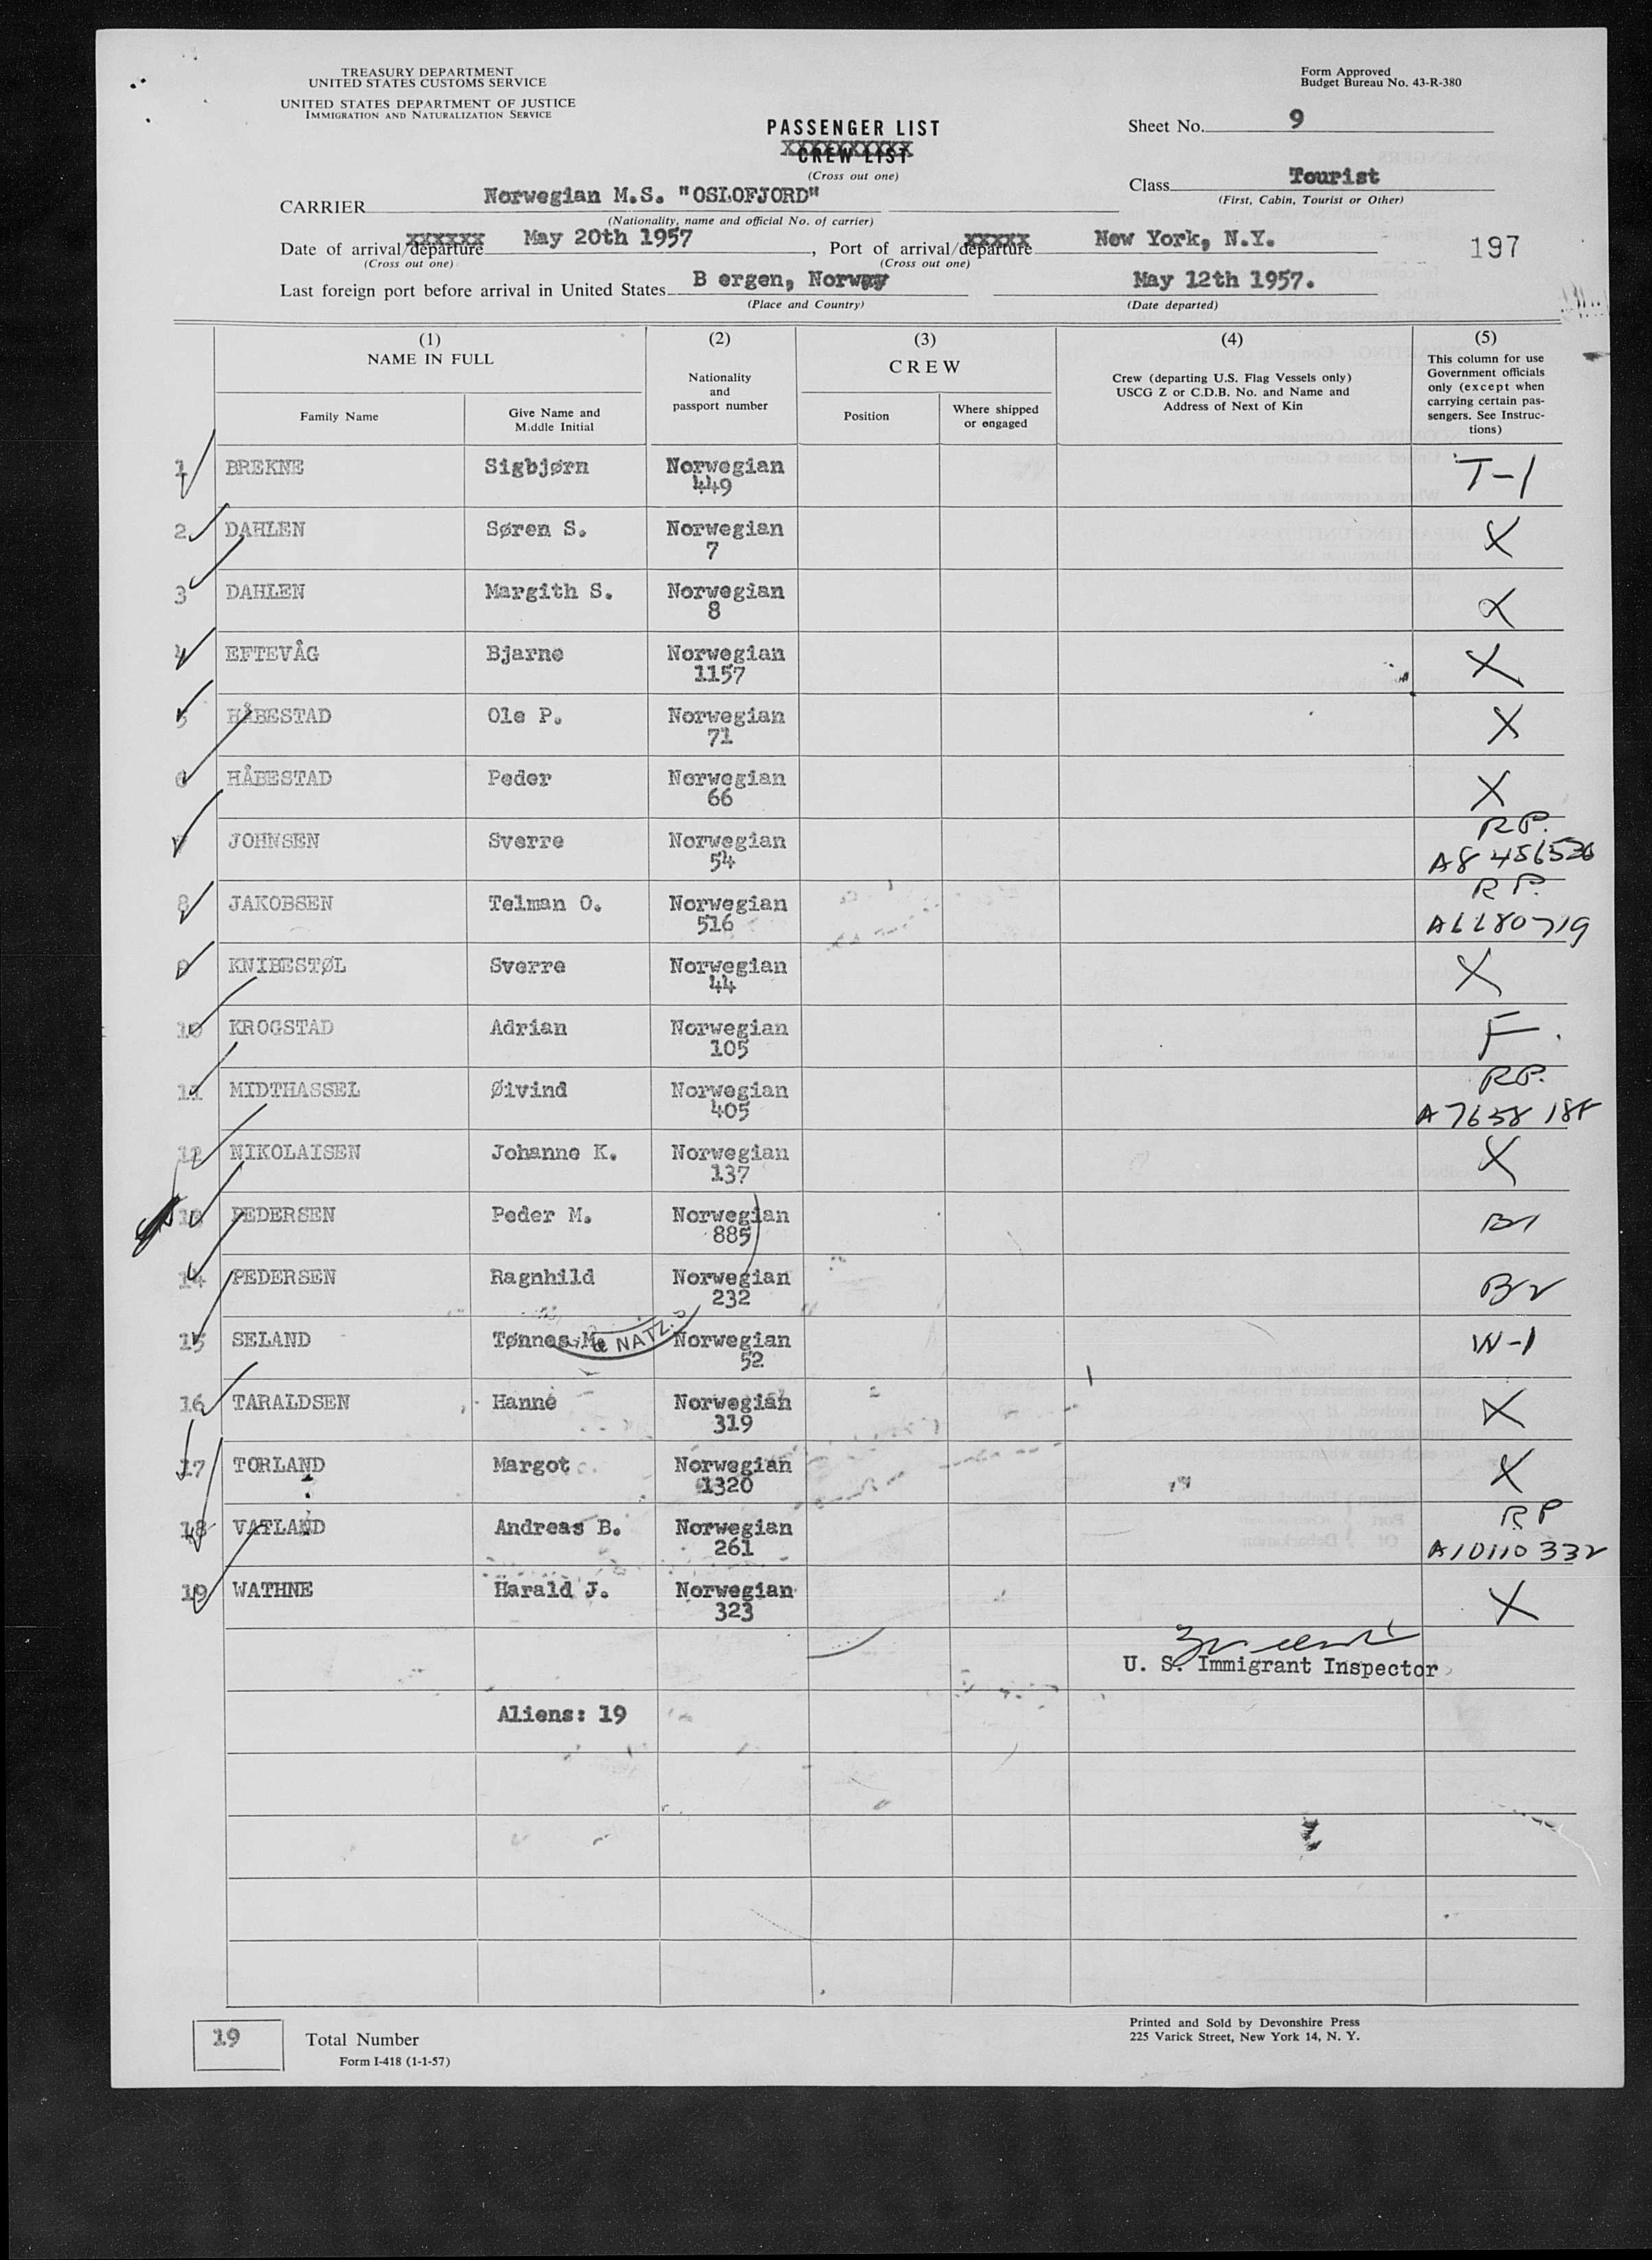 TREASURY DEPARTMENT
UNITED STATES CUSTOMS SERVICE
UNITED STATES DEPARTMENT OF JUSTICE
IMMIGRATION AND NATURALIZATION SERVICE
Form Approved
Budget Bureau No. 43-R-380
PASSENGER LIST
CREW LIST
(Cross out one)
Sheet No. 9
Class Tourist
(First, Cabin, Tourist or Other)
CARRIER Norwegian M.S. "OSLOFJORD"
(Nationality, name and official No. of carrier)
Date of arrival/departure May 20th 1957, Port of arrival/departure New York, N.Y.
(Cross out one) (Cross out one)
197
Last foreign port before arrival in United States B ergen, Norway May 12th 1957.
(Place and Country) (Date departed)
(1) NAME IN FULL
Family Name
Give Name and Middle Initial
(2) Nationality and passport number
(3) CREW
Position
Where shipped or engaged
(4) Crew (departing U.S. Flag Vessels only) USCG Z or C.D.B. No. and Name and Address of Next of Kin
(5) This column for use Government officials only (except when carrying certain passengers. See Instructions)
1 BREKNE Sigbjørn Norwegian 449 T-1
2 DAHLEN Søren S. Norwegian 7 X
3 DAHLEN Margith S. Norwegian 8 X
4 EFTEVÅG Bjarne Norwegian 1157 X
5 HÅBESTAD Ole P. Norwegian 71 X
6 HÅBESTAD Peder Norwegian 66 X
7 JOHNSEN Sverre Norwegian 54 R.P.
8 JAKOBSEN Telman O. Norwegian 516 R.P. A6680719
9 KNIBESTØL Sverre Norwegian 44 X
10 KROGSTAD Adrian Norwegian 105 F
11 MIDTHASSEL Øivind Norwegian 405 R.P.
12 NIKOLAISEN Johanne K. Norwegian 137 X
13 PEDERSEN Peder M. Norwegian 885 B1
14 PEDERSEN Ragnhild Norwegian 232 B2
15 SELAND Tønnes M. Norwegian 52 W-1
& NATZ. S
16 TARALDSEN Hanne Norwegian 319 X
17 TORLAND Margot Norwegian 1320 X
18 VATLAND Andreas B. Norwegian 261 RP A10110332
19 WATHNE Harald J. Norwegian 323 X
U. S. Immigrant Inspector
Aliens: 19
19 Total Number
Form I-418 (1-1-57)
Printed and Sold by Devonshire Press
225 Varick Street, New York 14, N. Y.